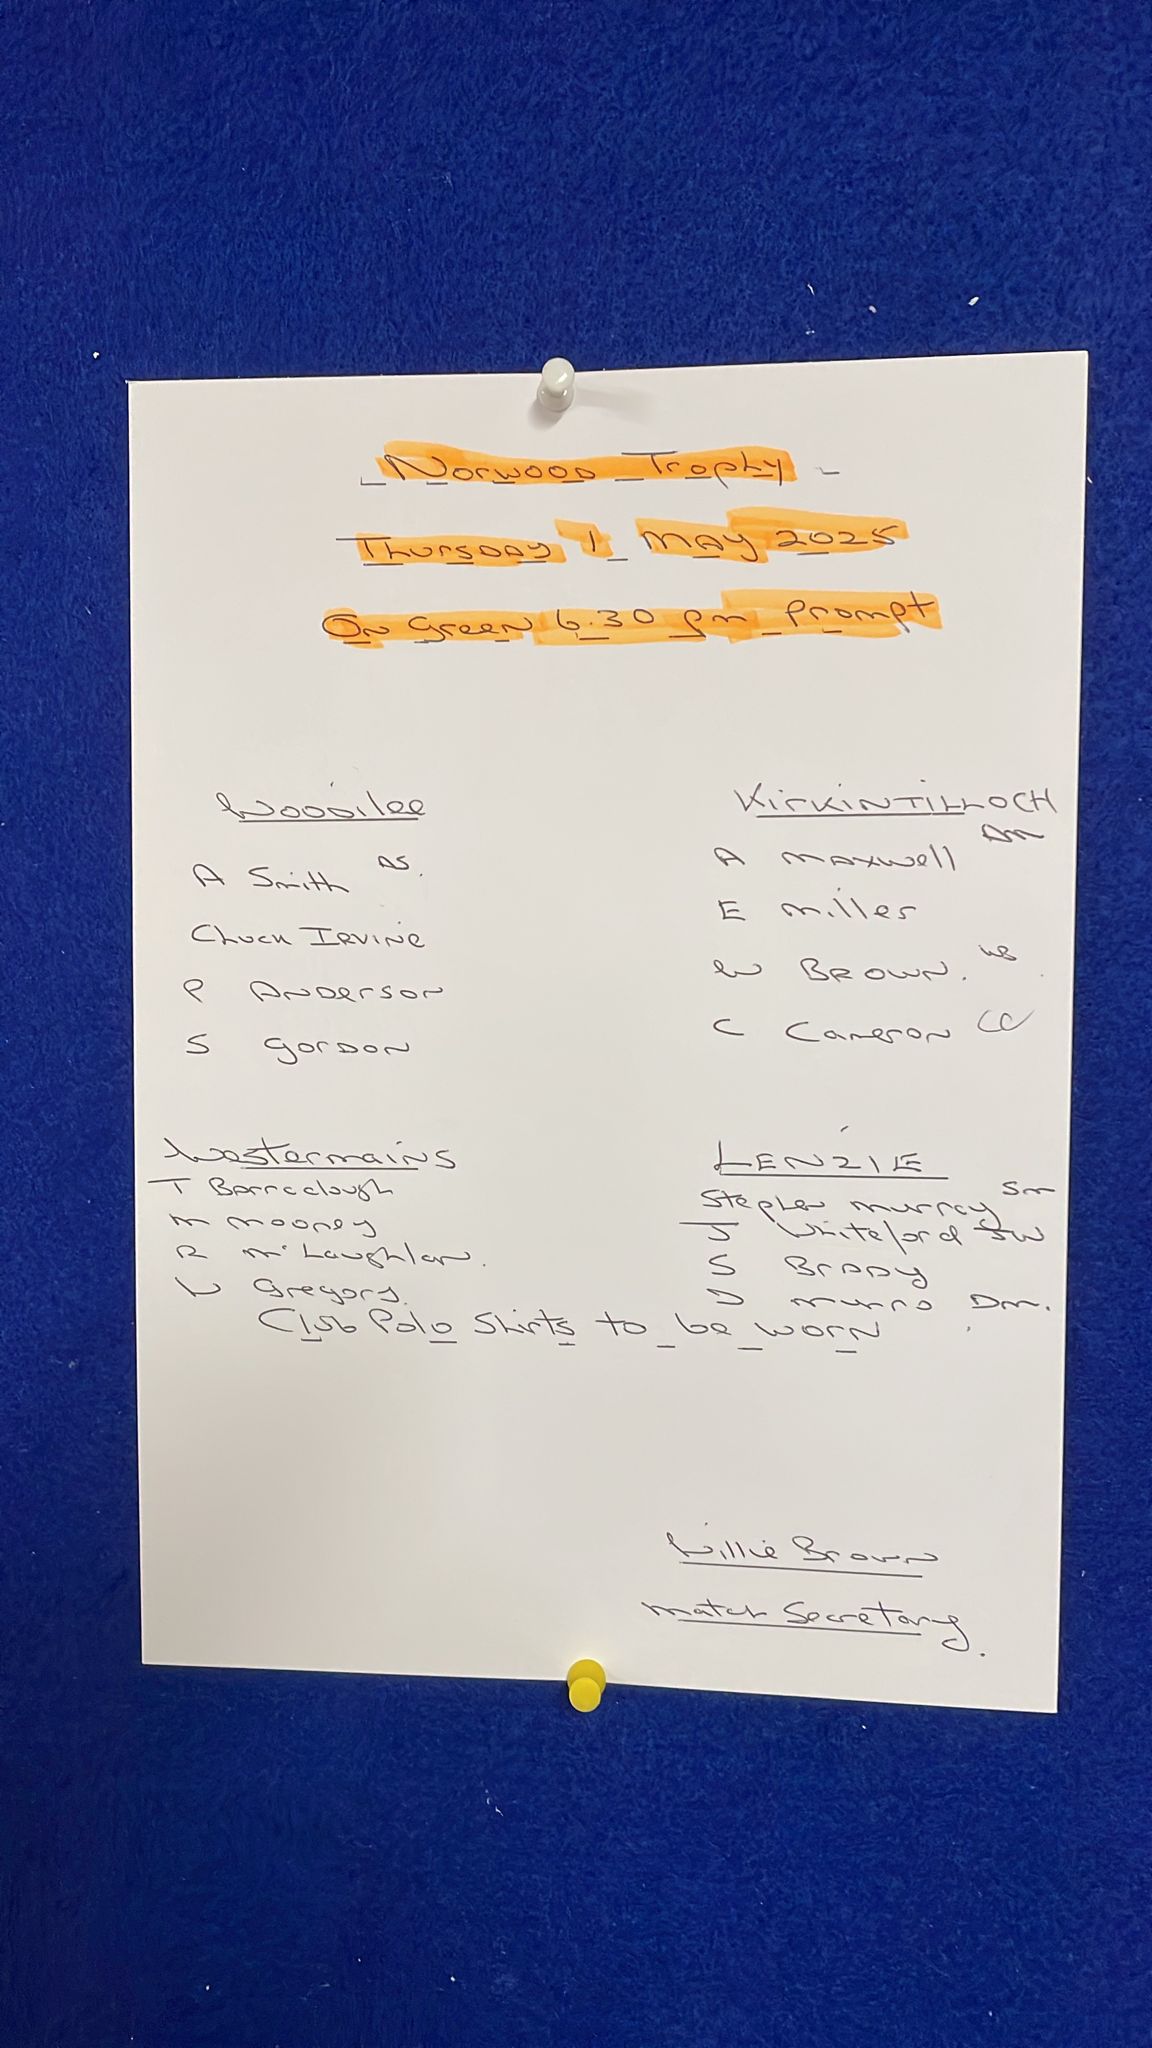 Norwood Trophy
Thursday 1 May 2025
On Green 6.30 pm Prompt
Woodilee
A Smith AS.
Chuck Irvine
P Anderson
S Gordon
KIRKINTILLOCH
A Maxwell AM
E Miller
W BROWN. WB
C Cameron CC
Westermains
T Barraclough
M Mooney
R McLaughlan.
W Gregory.
LENZIE
Stephen Murray SM
J Whiteford JW
S Brady
D Munro DM.
Club Polo Shirts to be worn
Willie Brown
Match Secretary.